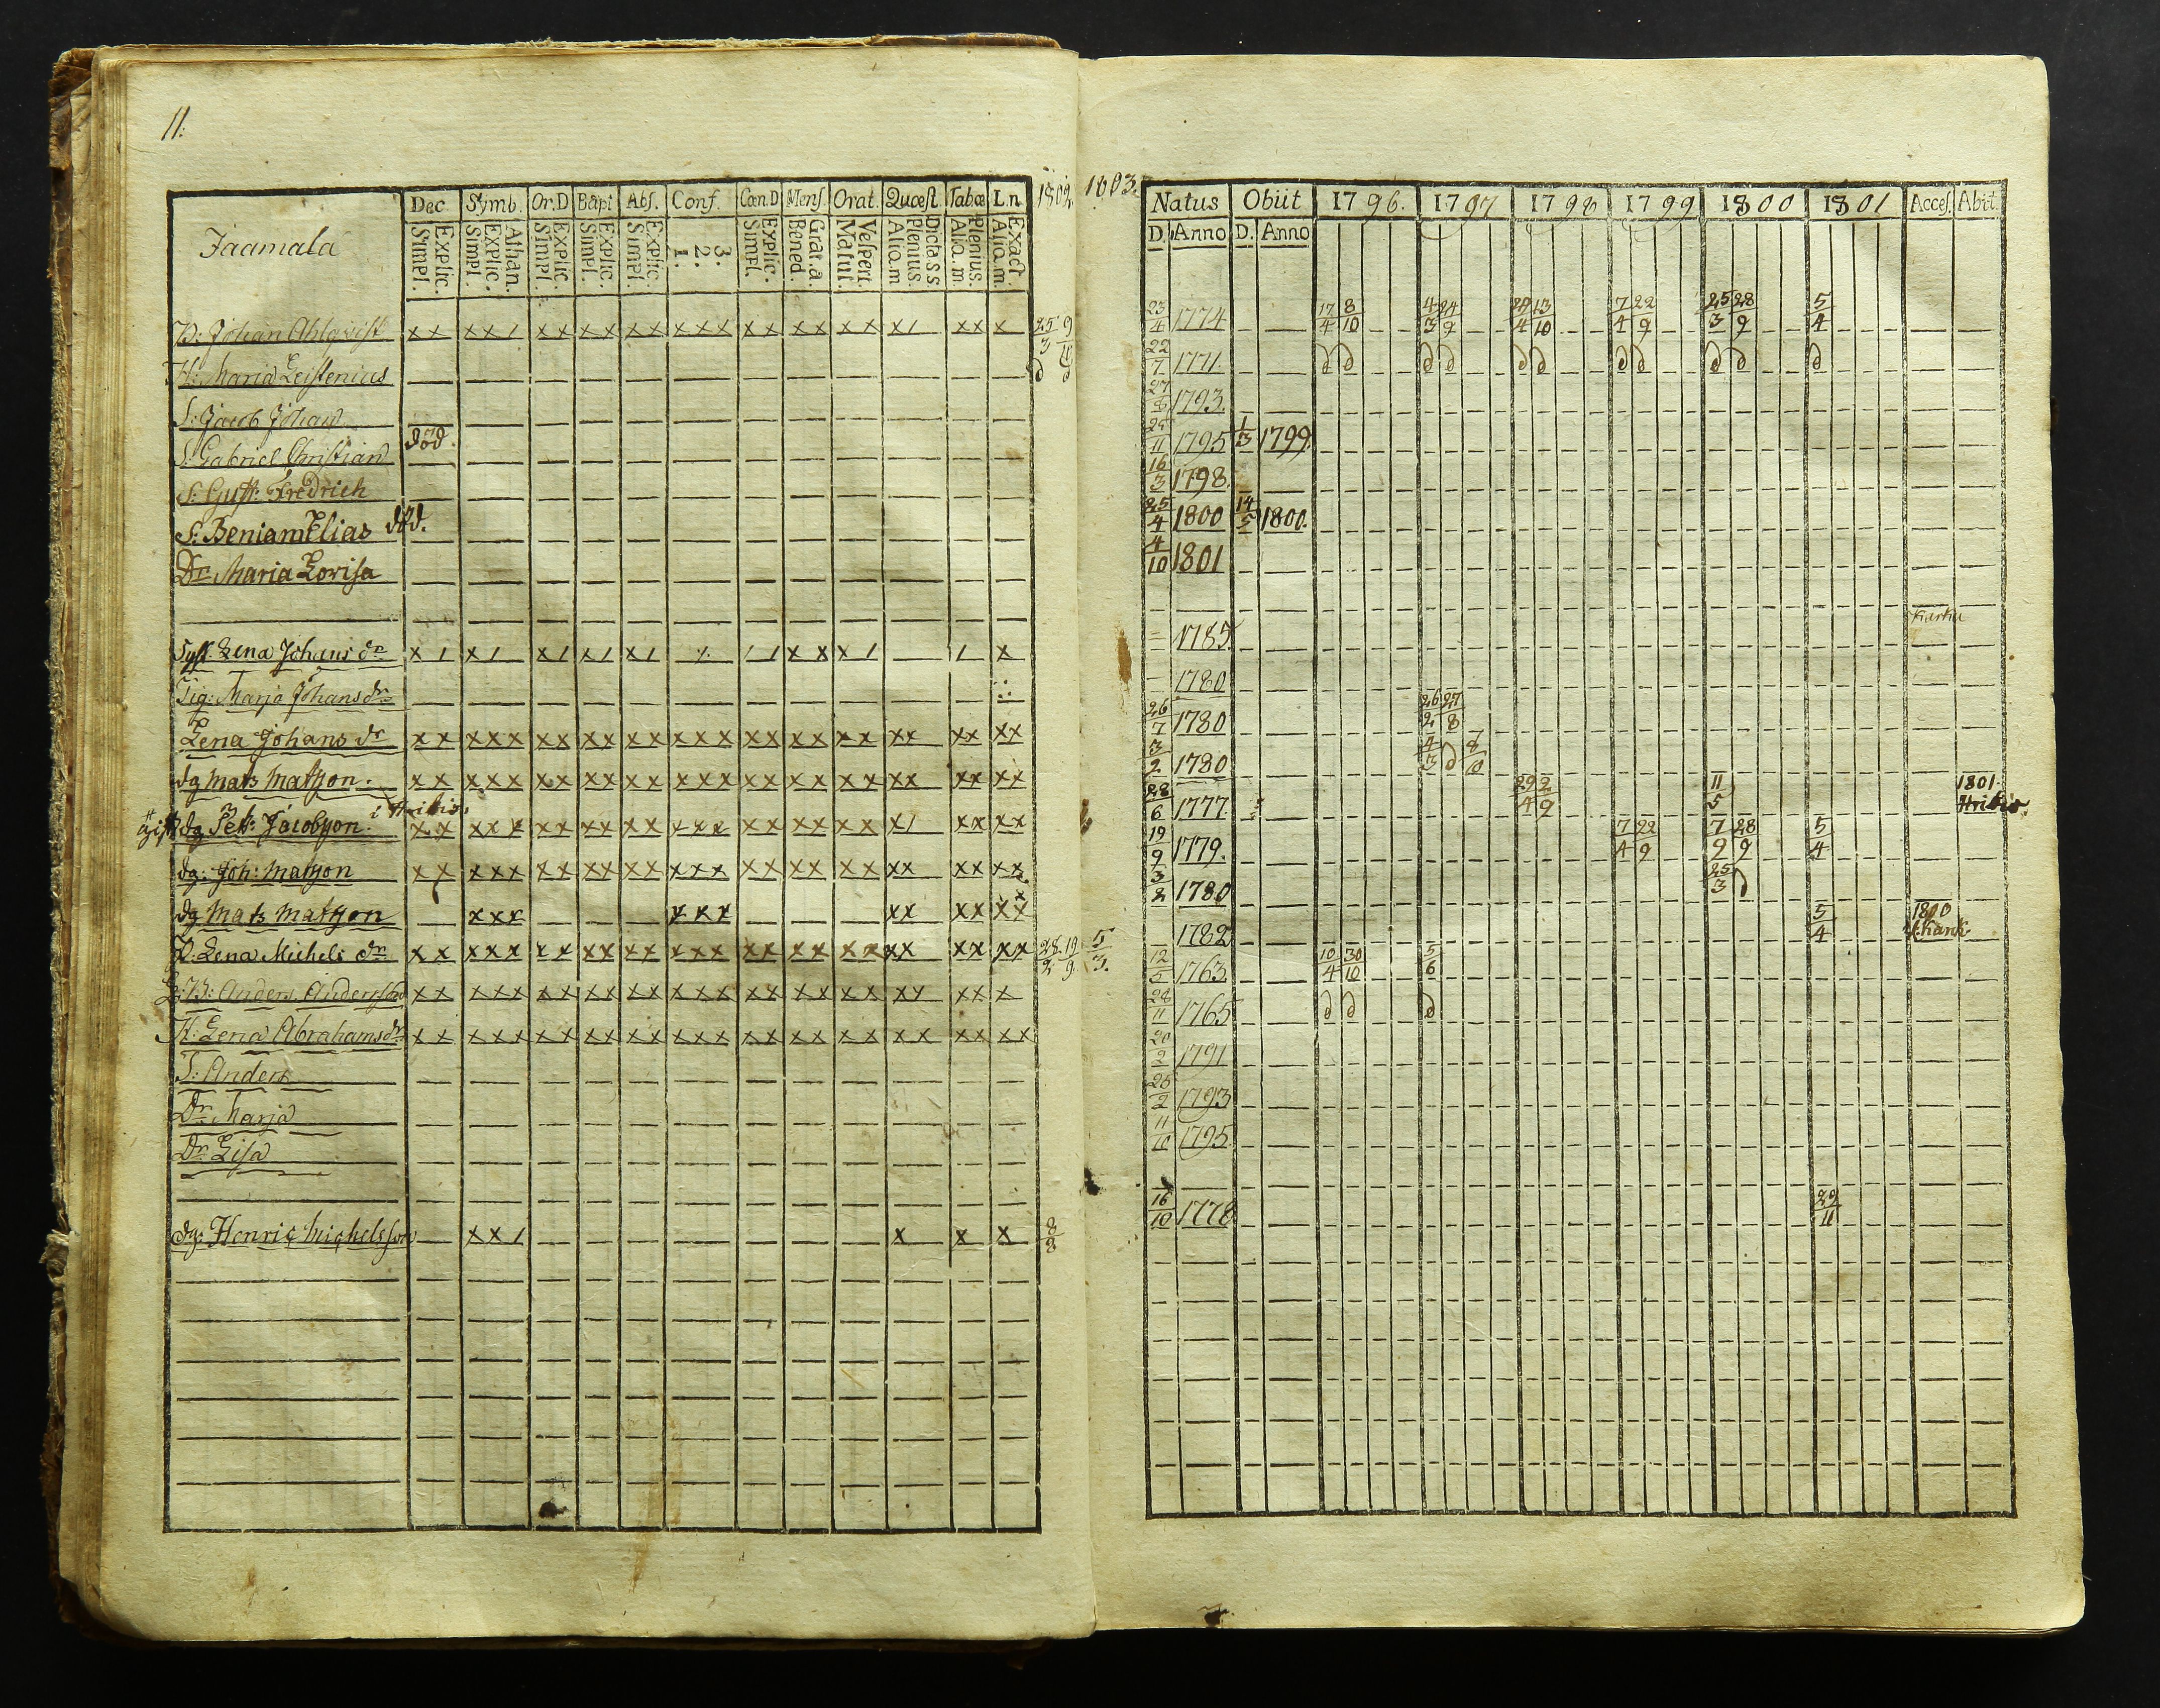 11:
Jaamala
Dec Symb. Or.D Bapt Abs. Conf. Cœn.D Mens. Orat. Quæst. Tabæ L.n. 1802
Simpl. Explic. Simpl. Explic. Athan. Simpl. Explic. Simpl. Explic. Simpl. Explic. 1. 2. 3. Simpl. Explic. Bened. Grat.a. Matut. Vespert. Alio.m Plenius. Dicta s s Alio.m Plenius. Alio.m. Exact.
B: Johan Ahlqvist x x x x / x x x x x x x x x x x x x x x x / x x x 25/3 9/10
H: Maria Leistenius d d
S: Jacob Johan
S: Gabriel Christian död.
S: Gust: Fredrich
S: Beniam Elias död.
Dr Maria Lovisa
Lena Johans dr x / x / x / x / x / / / / x x x / / x
Pig: Marja Johansdr
Lena Johans dr x x x x x x x x x x x x x x x x x x x x x x x x x x
dg Mats Matsson. x x x x x x x x x x x x x x x x x x x x x x x x x x
dg Pett: Jacobsson. x x x x x x x x x x x x x x x x x x x x x / x x x x
dg: Joh: Matsson x x x x x x x x x x x x x x x x x x x x x x x x x x
dg Mats Matsson x x x x x x x x x x x x
P: Lena Michels dr x x x x x x x x x x x x x x x x x x x x x x x x x x 28/2 19/9 5/3.
B: Anders Andersson x x x x x x x x x x x x x x x x x x x x x x x x x
H: Lena Abrahamsdr x x x x x x x x x x x x x x x x x x x x x x x x x x
S: Anders
Dr Marja
Dr Lisa
dg: Henric Michelsson x x / x x x 8/8
1803.
Natus Obiit 1796. 1797 1798 1799 1800 1801 Acces. Abiit
D. Anno D. Anno
23/4 1774 17/4 8/10 4/3 24/9 13/10 7/4 22/9 25/3 28/9 5/4
22/7 1771. d d d d d d d d d d d
27/8 1793.
25/11 1795 1/3 1799
16/3 1798.
25/4 1800 14/5 1800.
4/10 1801
= 1785.
1780
26/7 1780 26/2 27/8
3/2 1780 4/3 d 8/10
28/6 1777. 29/4 2/9 11/5 1801.
19/9 1779. 7/4 22/9 7/9 28/9 5/4
3/2 1780 25/3 d
1782 5/4 1800
12/5 1763 10/4 30/10 5/6
28/11 1765 d d d
20/2 1791
25/2 1793
11/10 1795
16/10 1778 29/11